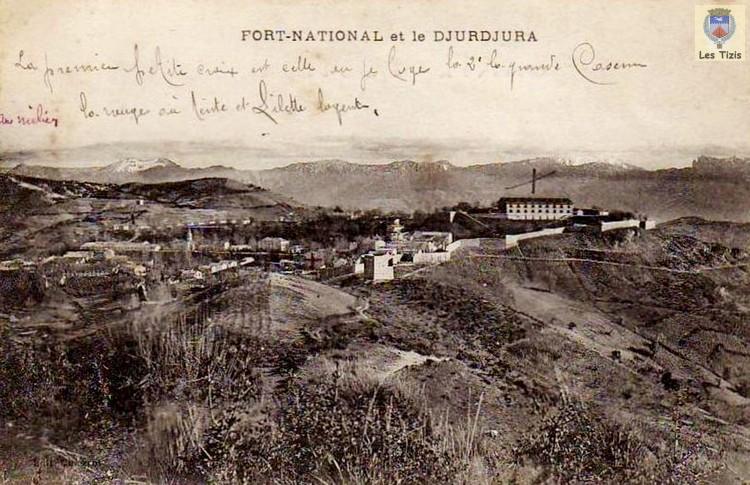 FORT-NATIONAL et le DJURDJURA
Les Tizis
La premier petite croix est celle ou je loge la 2e la grande Casern
la rouge où Tinte et Lilette logent
au milieu